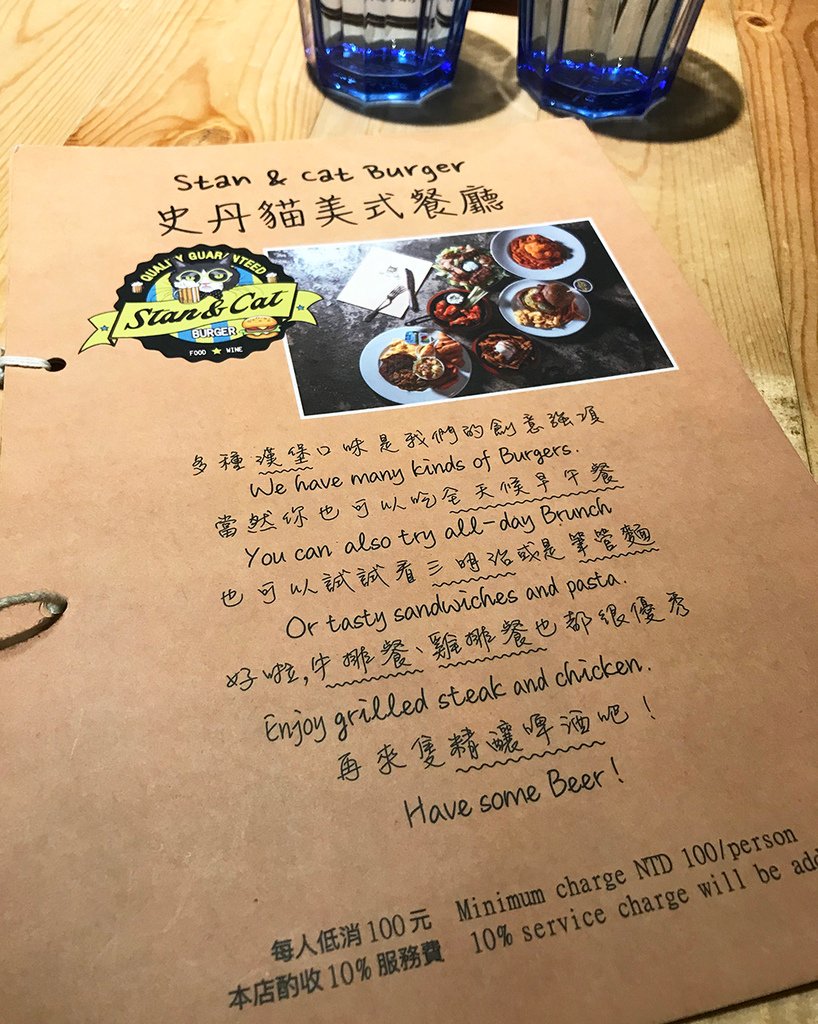 Stan & Cat Burger
史丹貓美式餐廳
QUALITY GUARANTEED
Stan & Cat
BURGER
FOOD ★ WINE
多種漢堡口味是我們的創意強項
We have many kinds of Burgers.
當然你也可以吃全天候早午餐
You can also try all-day Brunch
也可以試試看三明治或是筆管麵
Or tasty sandwiches and pasta.
好啦,牛排餐、雞排餐也都很優秀
Enjoy grilled steak and chicken.
再來隻精釀啤酒吧!
Have some Beer!
每人低消100元 Minimum charge NTD 100/person
本店酌收10%服務費 10% service charge will be add